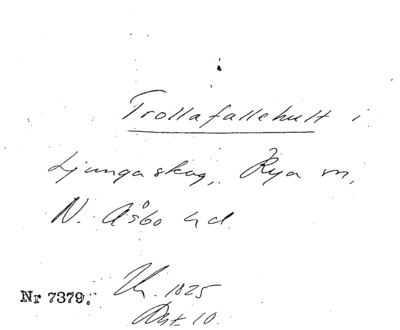 Trollafallehult i
Ljungaskog, Rya sn,
N. Åsbo hd.
Nr 7379.
1825
10.